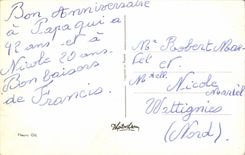 Bon Anniversaire
à Papa qui a
42 ans et à
Nicole 20 ans.
Bon baisers
de Francis.
Mr Robert Mas-
et
Melle Nicole
Wattignies
(Nord)